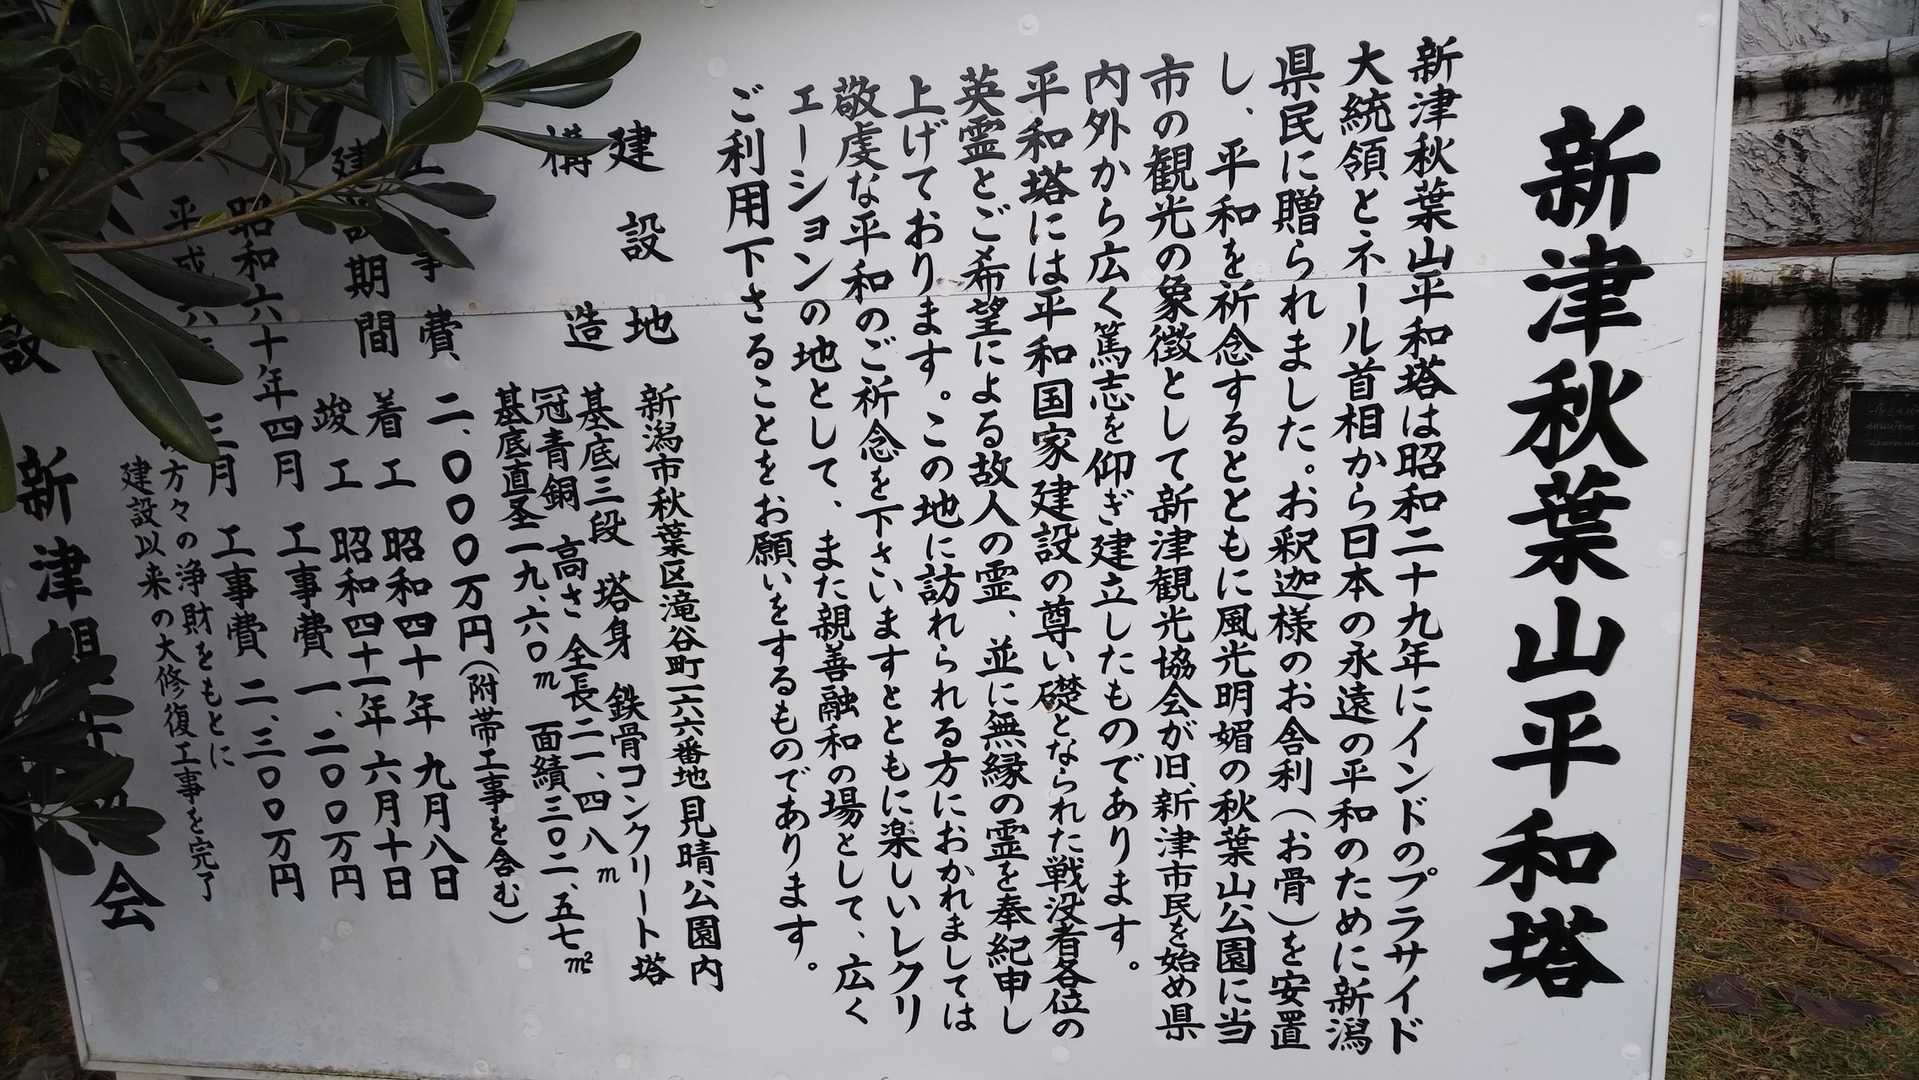 新津秋葉山平和塔
新津秋葉山平和塔は昭和二十九年にインドのプラサイド
大統領とネール首相から日本の永遠の平和のために新潟
県民に贈られました。お釈迦様のお舎利（お骨）を安置
し、平和を祈念するとともに風光明媚の秋葉山公園に当
市の観光の象徴として新津観光協会が旧、新津市民を始め県
内外から広く篤志を仰ぎ建立したものであります。
平和塔には平和国家建設の尊い礎となられた戦没者各位の
英霊とご希望による故人の霊、並に無縁の霊を奉紀申し
上げております。この地に訪れられる方におかれましては
敬虔な平和のご祈念を下さいますとともに楽しいレクリ
エーションの地として、また親善融和の場として、広く
ご利用下さることをお願いをするものであります。
建設地 新潟市秋葉区滝谷町一六六番地見晴公園内
構造 基底三段 塔身 鉄骨コンクリート塔
冠青銅 高さ 全長二一、四八m
基底直圣一九、六〇m 面績三〇二、五七㎡
事費 二、〇〇〇万円（附帯工事を含む）
建設期間 着工 昭和四十年九月八日
竣工 昭和四十一年六月十日
昭和六十年四月 工事費 一、二〇〇万円
平成六年三月 工事費 二、三〇〇万円
方々の浄財をもとに
建設以来の大修復工事を完了
設 新津観 会